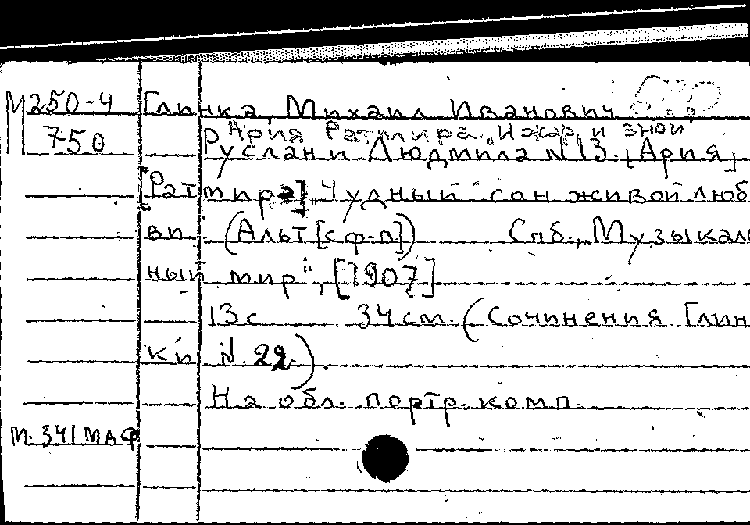 М250-4 Глинка, Михаил Иванович
750 Ария Ратмира "И жар, и зной"
Руслан и Людмила №13. [Ария
Ратмира] Чудный сон живой люб
ви. (Альт [с ф-п]) Спб., "Музыкаль
ный мир", [1907]
13 с 34 см. (Сочинения Глин
ки № 22).
На обл. портр. комп.
М. 341 МАФ